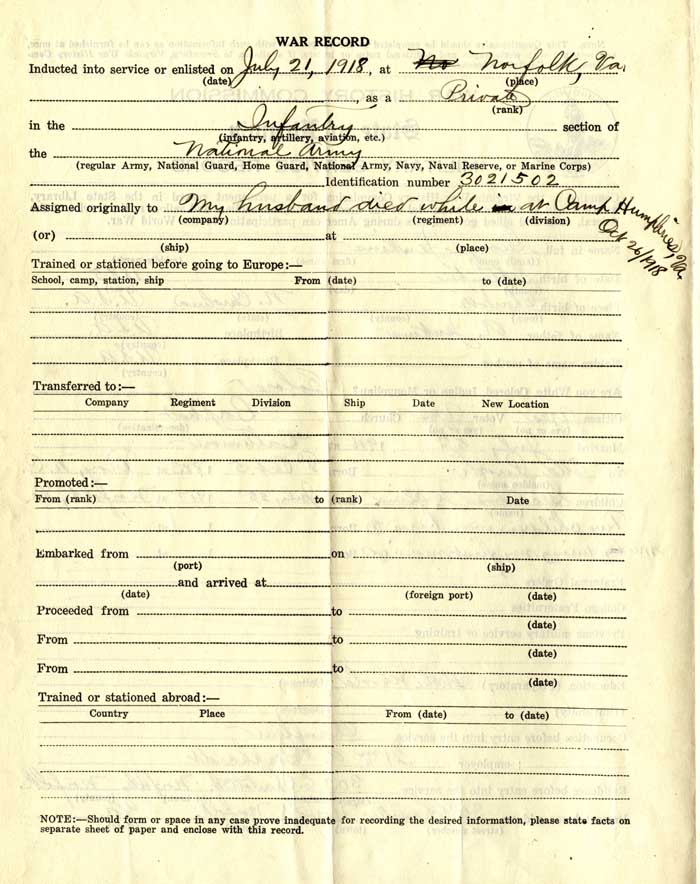 WAR RECORD
Inducted into service or enlisted on July 21, 1918, at No Norfolk, Va.
(date) (place)
, as a Private
(rank)
in the Infantry section of
(infantry, artillery, aviation, etc.)
the National Army
(regular Army, National Guard, Home Guard, National Army, Navy, Naval Reserve, or Marine Corps)
Identification number 3021502
Assigned originally to My husband died while in at Camp Humphries, Va.
Oct 26/1918
(company) (regiment) (division)
(or) at
(ship) (place)
Trained or stationed before going to Europe:—
School, camp, station, ship From (date) to (date)
Transferred to:—
Company Regiment Division Ship Date New Location
Promoted:—
From (rank) to (rank) Date
Embarked from on
(port) (ship)
and arrived at
(date) (foreign port) (date)
Proceeded from to
(date)
From to
(date)
From to
(date)
Trained or stationed abroad:—
Country Place From (date) to (date)
NOTE:—Should form or space in any case prove inadequate for recording the desired information, please state facts on
separate sheet of paper and enclose with this record.